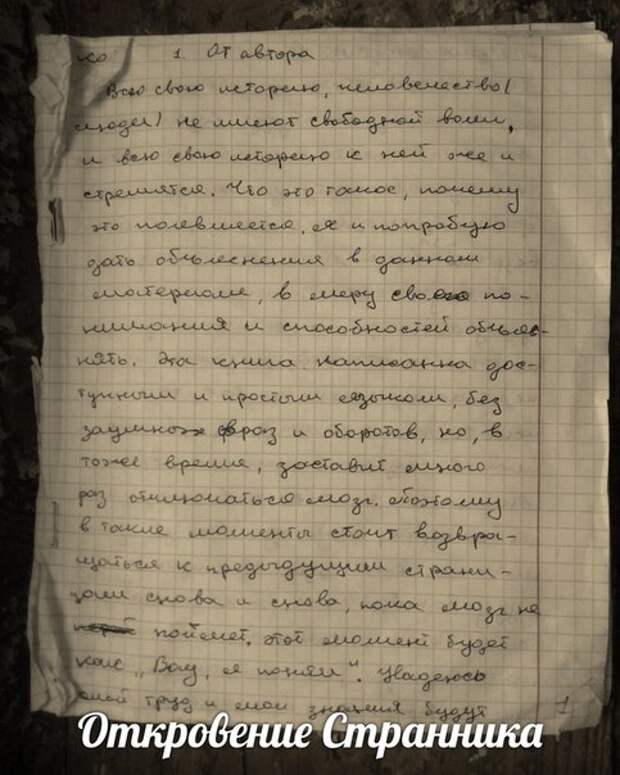 1. От автора
Всю свою историю, человечество (
люди) не имеют свободной воли,
и всю свою историю к ней же и
стремятся. Что это такое, почему
это появляется, я и попробую
дать объяснения в данном
материале, в меру своего по-
нимания и способностей объяс-
нять. Эта книга написанна дос-
тупным и простым языком, без
заумных фраз и оборотов, но, в
тоже время, заставит много
раз отключаться мозг. Поэтому
в такие моменты стоит возвра-
щаться к предыдущим страни-
цам снова и снова, пока мозг не
поймет. Этот момент будет
как "Вау, я понял". Надеюсь
мой труд и мои знания будут
1
Откровение Странника